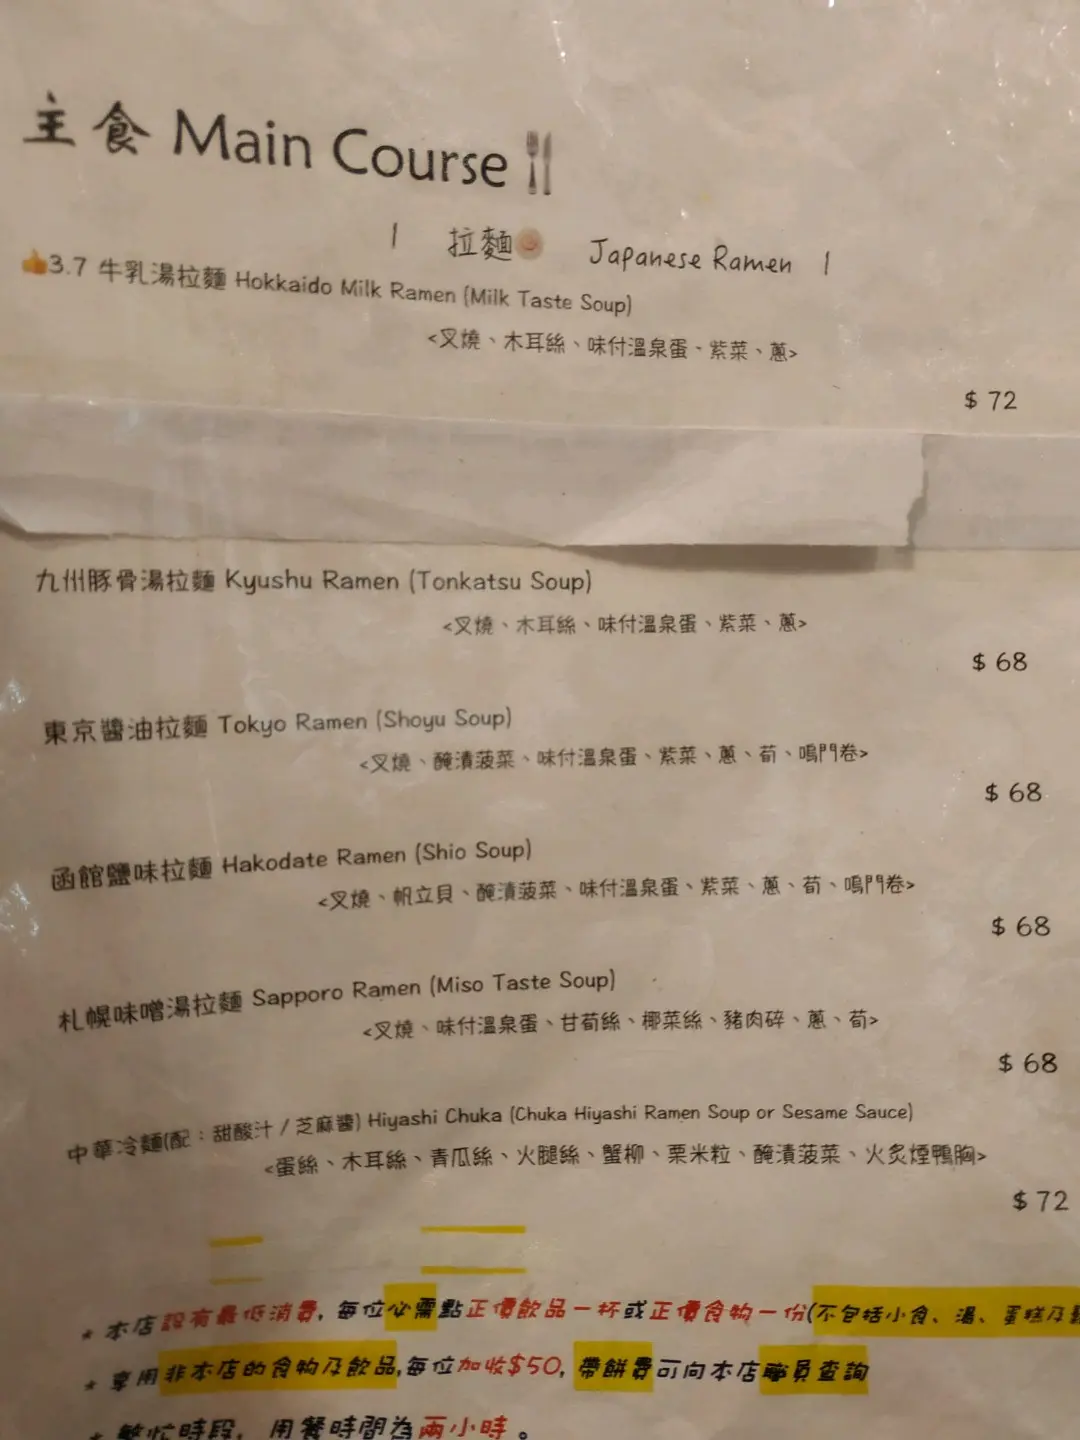 主食 Main Course
| 拉麵 Japanese Ramen |
3.7 牛乳湯拉麵 Hokkaido Milk Ramen (Milk Taste Soup)
<叉燒、木耳絲、味付溫泉蛋、紫菜、蔥>
$ 72
九州豚骨湯拉麵 Kyushu Ramen (Tonkatsu Soup)
<叉燒、木耳絲、味付溫泉蛋、紫菜、蔥>
$ 68
東京醬油拉麵 Tokyo Ramen (Shoyu Soup)
<叉燒、醃漬菠菜、味付溫泉蛋、紫菜、蔥、荀、鳴門卷>
$ 68
函館鹽味拉麵 Hakodate Ramen (Shio Soup)
<叉燒、帆立貝、醃漬菠菜、味付溫泉蛋、紫菜、蔥、荀、鳴門卷>
$ 68
札幌味噌湯拉麵 Sapporo Ramen (Miso Taste Soup)
<叉燒、味付溫泉蛋、甘荀絲、椰菜絲、豬肉碎、蔥、荀>
$ 68
中華冷麵(配：甜酸汁 / 芝麻醬) Hiyashi Chuka (Chuka Hiyashi Ramen Soup or Sesame Sauce)
<蛋絲、木耳絲、青瓜絲、火腿絲、蟹柳、粟米粒、醃漬菠菜、火炙煙鴨胸>
$ 72
* 本店設有最低消費, 每位必需點正價飲品一杯或正價食物一份(不包括小食、湯、蛋糕及
* 享用非本店的食物及飲品,每位加收$50, 帶餅費可向本店職員查詢
* 繁忙時段, 用餐時間為兩小時。